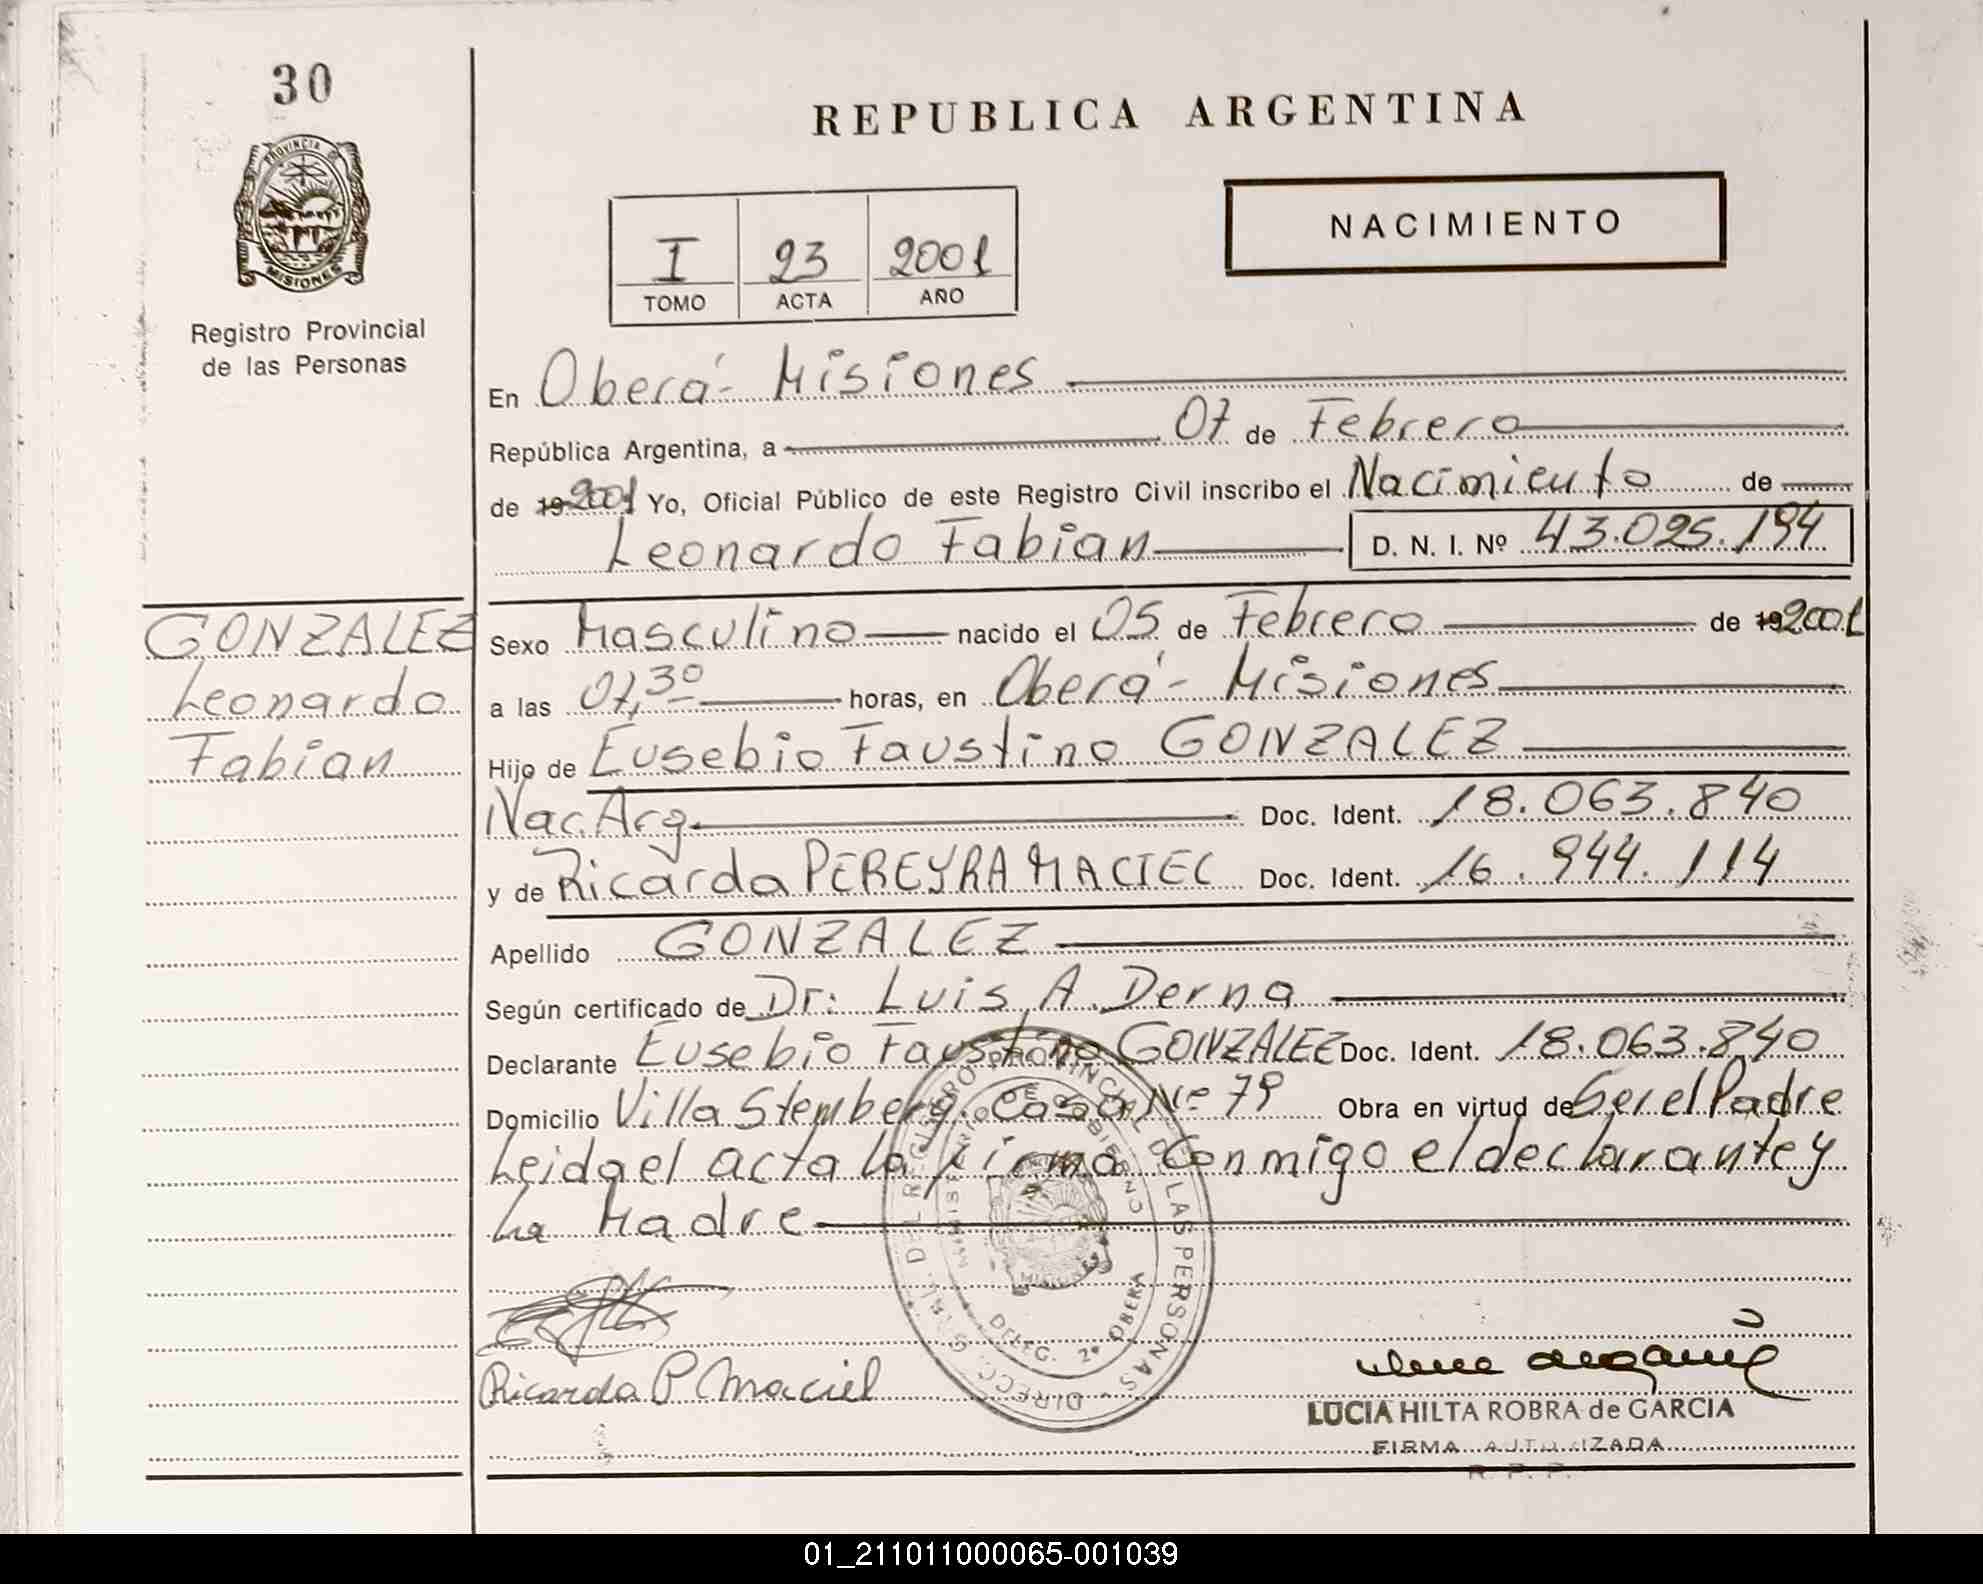 30
PROVINCIA DE
MISIONES
Registro Provincial
de las Personas
REPUBLICA ARGENTINA
NACIMIENTO
I 23 2001
TOMO ACTA AÑO
En Oberá - Misiones
República Argentina, a 07 de Febrero
de 19 2001 Yo, Oficial Público de este Registro Civil inscribo el Nacimiento de
Leonardo Fabian D. N. I. Nº 43.025.194
GONZALEZ
Leonardo
Fabian
Sexo Masculino nacido el 05 de Febrero de 19 2001
a las 07,30 horas, en Oberá - Misiones
Hijo de Eusebio Faustino GONZALEZ
Nac. Arg. Doc. Ident. 18.063.840
y de Ricarda PEREYRA MACIEL Doc. Ident. 16.944.114
Apellido GONZALEZ
Según certificado de Dr: Luis A. Derna
Declarante Eusebio Faustino GONZALEZ Doc. Ident. 18.063.840
Domicilio Villa Stemberg. Casa Nº 79 Obra en virtud de Ser el Padre
Leida el acta la firma conmigo el declarante y
La Madre
DIRECC. GRAL. DEL REGISTRO PROVINCIAL DE LAS PERSONAS
MINISTERIO DE GOBIERNO
DELEG. 2ª OBERA
Ricarda P Maciel
LUCIA HILTA ROBRA de GARCIA
FIRMA AUTORIZADA
R. P. P.
01_211011000065-001039